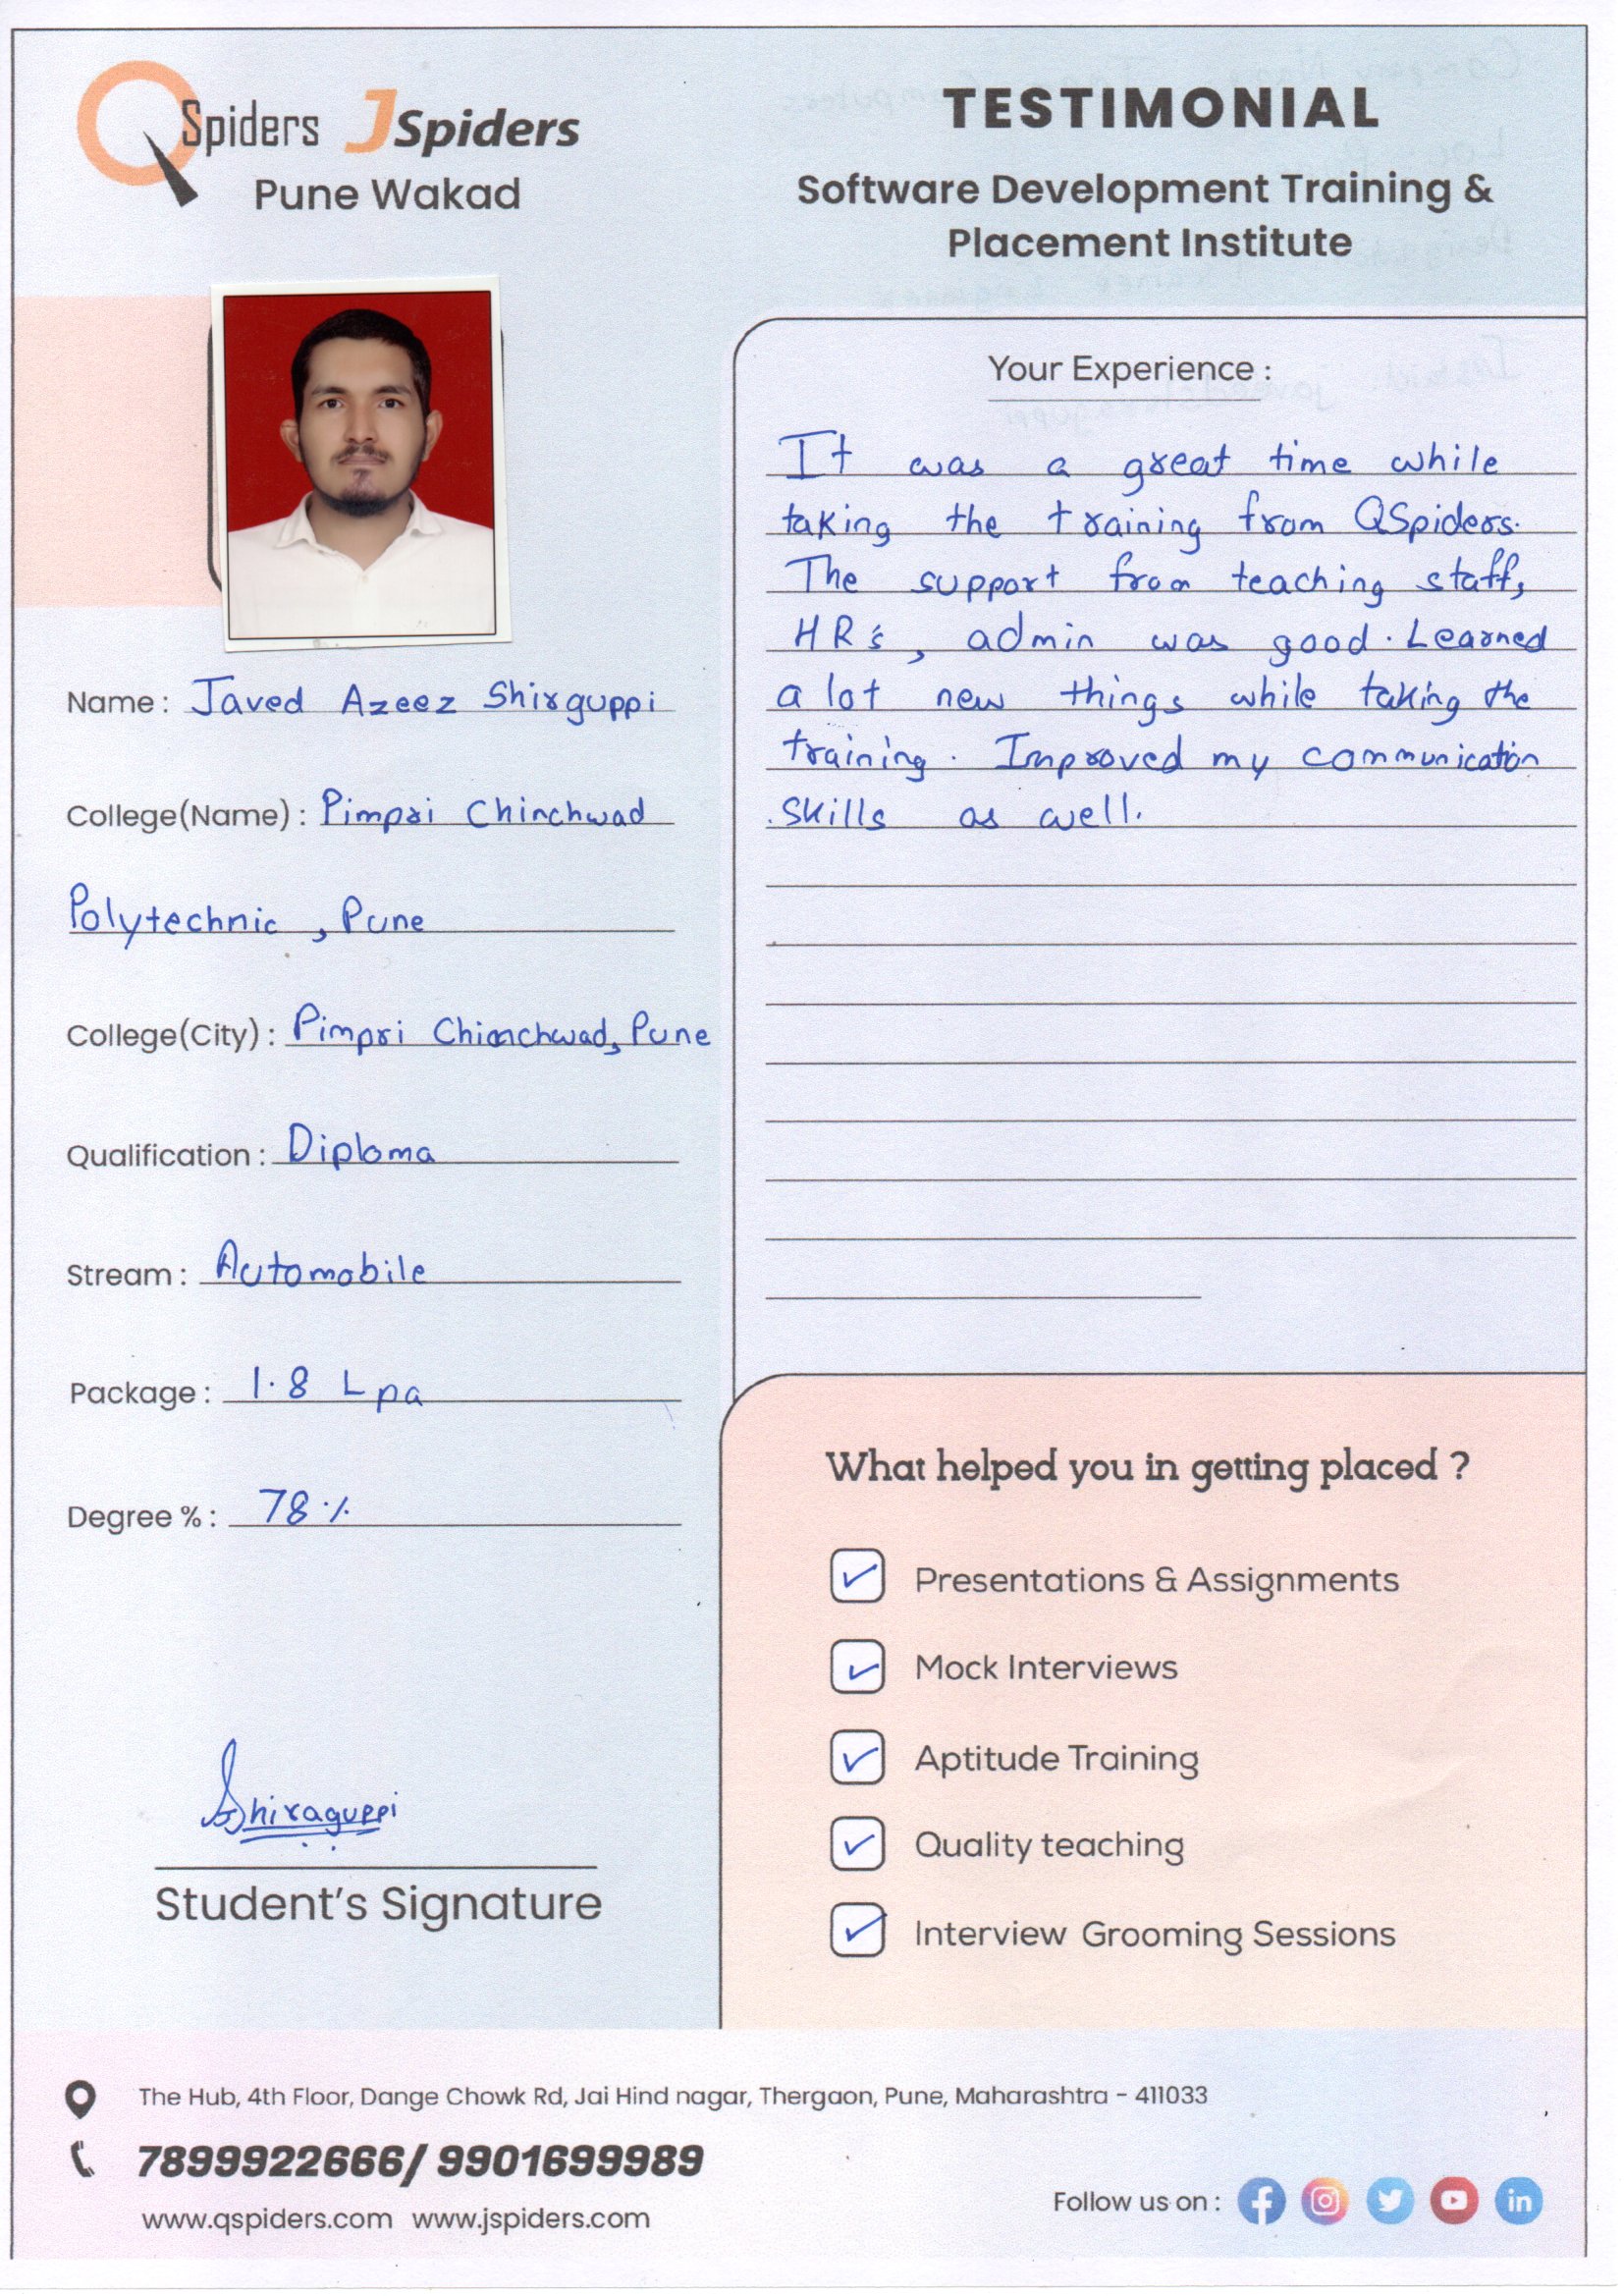 QSpiders JSpiders
Pune Wakad
TESTIMONIAL
Software Development Training &
Placement Institute
Name : Javed Azeez Shirguppi
College(Name) : Pimpri Chinchwad
Polytechnic , Pune
College(City) : Pimpri Chinchwad, Pune
Qualification : Diploma
Stream : Automobile
Package : 1.8 Lpa
Degree % : 78 %
Shiraguppi
Student's Signature
Your Experience :
It was a great time while
taking the training from QSpiders.
The support from teaching staff,
HR's, admin was good. Learned
a lot new things while taking the
training. Improved my communication
skills as well.
What helped you in getting placed ?
Presentations & Assignments
Mock Interviews
Aptitude Training
Quality teaching
Interview Grooming Sessions
The Hub, 4th Floor, Dange Chowk Rd, Jai Hind nagar, Thergaon, Pune, Maharashtra - 411033
7899922666/ 9901699989
www.qspiders.com www.jspiders.com
Follow us on :